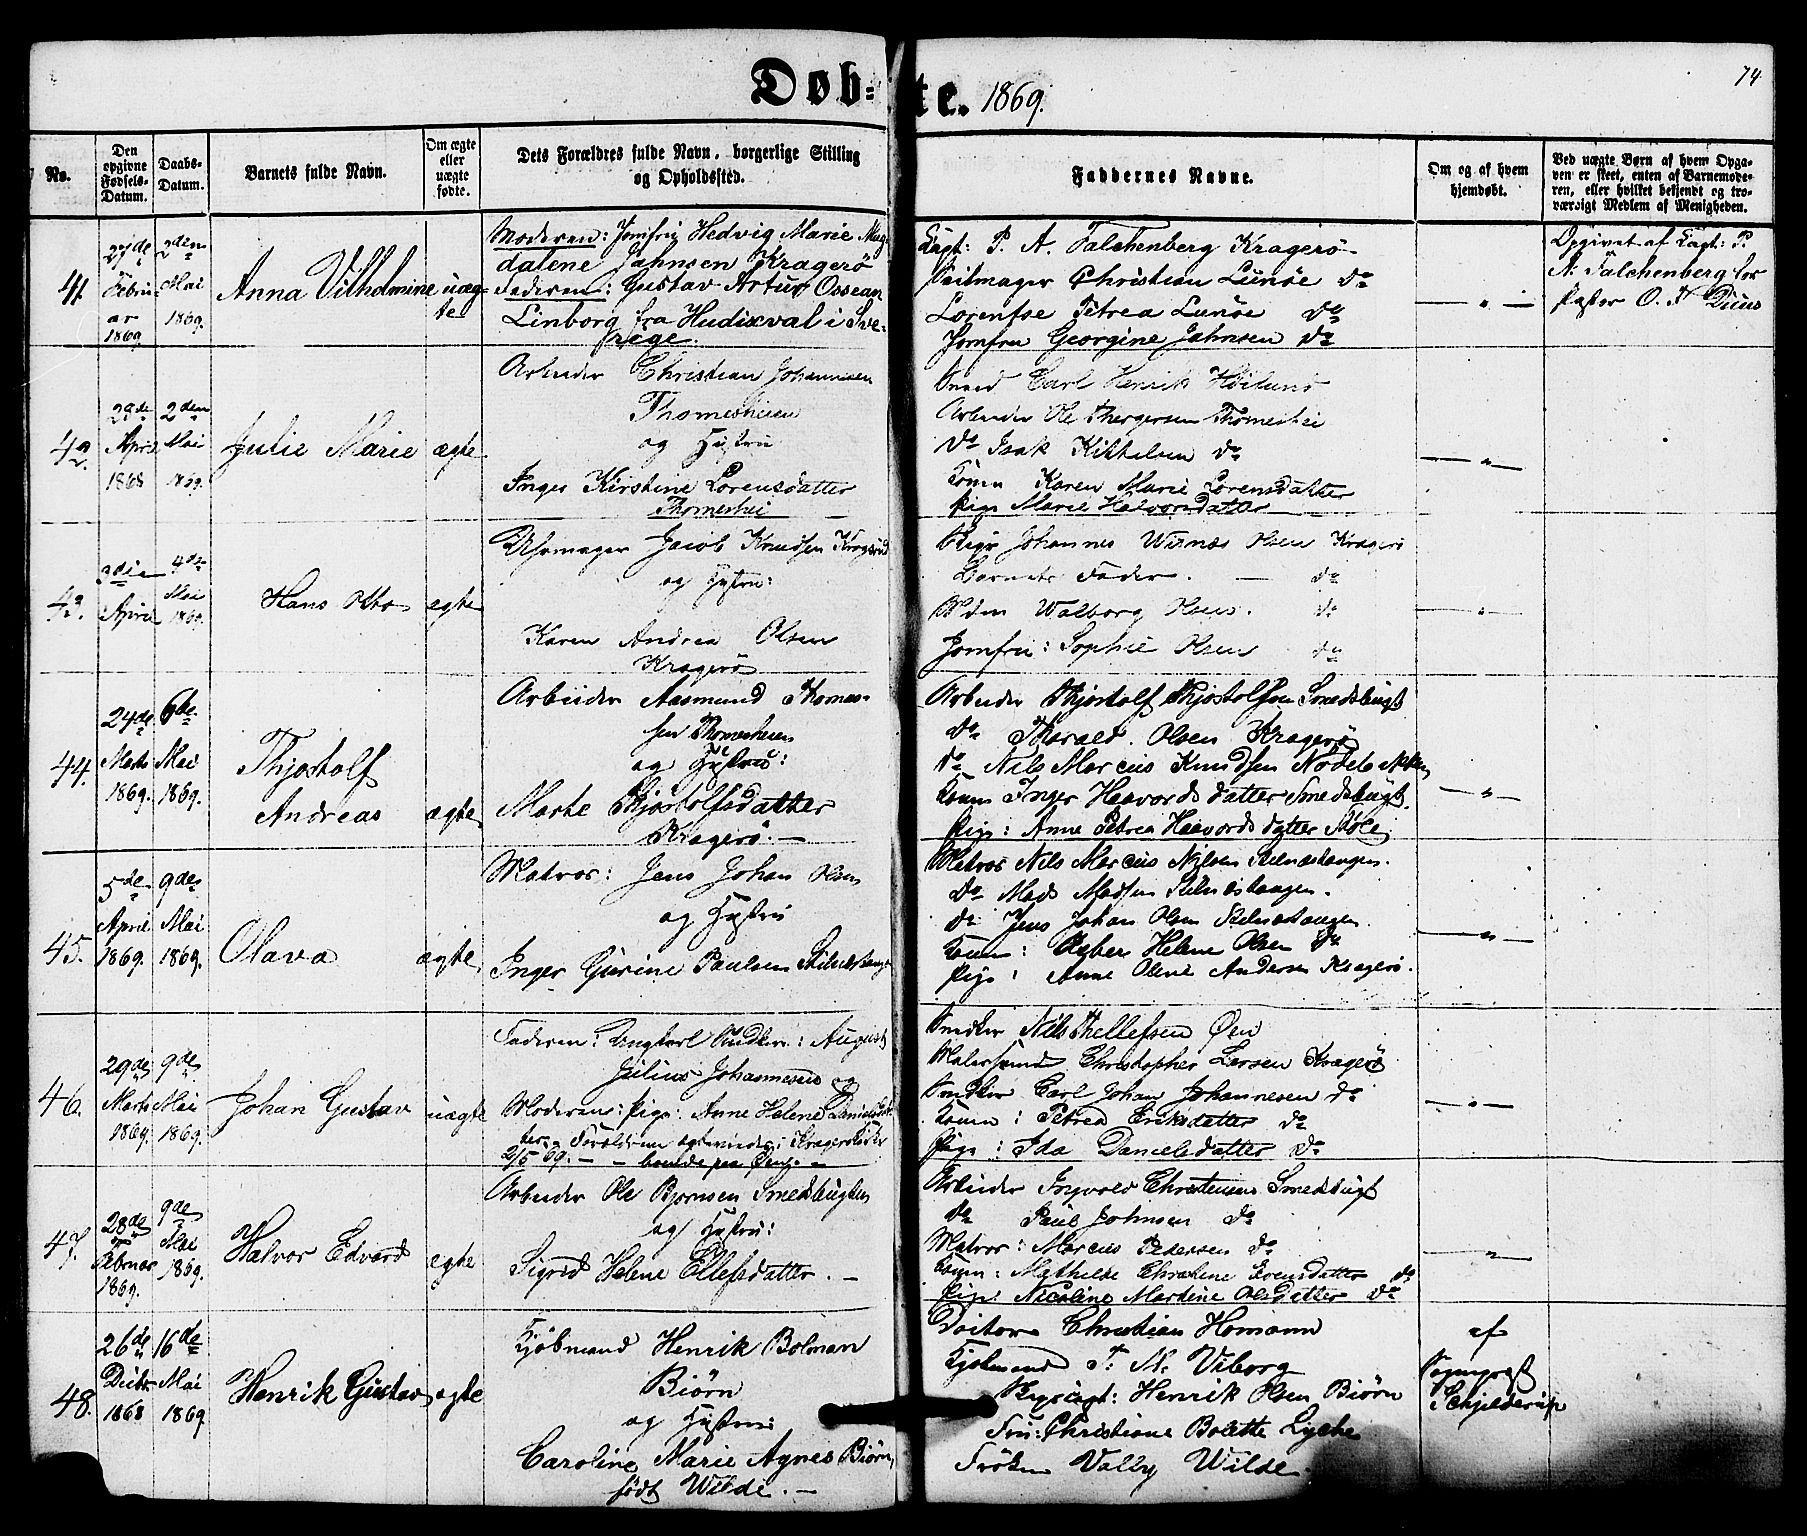 Døb-te. 1869.
74
No.
Den opgivne Fødsels-Datum.
Daabs-Datum.
Barnets fulde Navn.
Om ægte eller uægte fødte.
Dets Forældres fulde Navn, borgerlige Stilling
og Opholdssted.
Faddernes Navne.
Om og af hvem
hjemdøbt.
Ved uægte Børn af hvem Opga-
ven er skeet, enten af Barnemode-
ren, eller hvilket bekjendt og tro-
værdigt Medlem af Menigheden.
41.
27de Februar 1869
2den Mai 1869.
Anna Vilhelmine
uægte
Moderen: Jomfru Hedvig Marie Mag-
dalene Jahnsen Kragerö
Faderen: Gustav Artur Ossean
Linborg fra Hudixval i Sve-
rige.
Capt: P. A. Falchenberg Kragerö
Seilmager Christian Lunöe do
Lorentse Petrea Lunöe do
Jomfru Georgine Jahnsen do
Opgivet af Capt: P.
A. Falchenberg for
Pastor O. T. Duus
42.
29de April 1868
2den Mai 1869.
Julie Marie
ægte
Arbeider Christian Johannesen
Thomesheien
og Hustru
Inger Kirstine Lorensdatter
Thomeshei
Smed Carl Henrik Höilund
Arbeider Ole Thergersen Thomeshei
do Isak Kittelsen do
Konen Karen Marie Lorensdatter
Pige Marie Halvorsdatter
43.
April
4de Mai 1869.
Hans Otto
ægte
Uhrmager Jacob Knudsen
og Hustru:
Karen Andrea Olsen
Kragerö
Johannes Olsen Kragerö
Barnets Fader. do
Walborg Olsen. do
Jomfru: Sophie Olsen do
44.
24de Marts 1869.
6de Mai 1869.
Thjostolf
Andreas
ægte
Arbeider Aasmund Thomas-
sen Thomesheien
og Hustru:
Marte Thjostolfsdatter
Kragerö.
Arbeider Thjostolf Thjostolfsen Smedsbugt
do Tharald Olsen Kragerö
do Nils Marcus Knudsen
Konen Inger Haavordsdatter Smedsbugt.
Pige: Anne Petrea Haavordsdatter
45.
5de April 1869.
9de Mai 1869.
Olava
ægte
Matros: Jens Johan Olsen
og Hustru
Inger Gurine Paulsen
Matros Nils Marcus Nilsen
do Mads Madsen
do Jens Johan Olsen
Konen: Helene Olsen do
Pige: Anne Olene Andersen Kragerö.
46.
29de Marts 1869.
9de Mai 1869.
Johan Gustav
uægte
Faderen: Ungkarl Snedker: August
Julius Johannesen og
Moderen: Pige: Anne Helene Danielsdat-
ter. Forældrene ægteviede i Kragerö Kirke
2/5 69. — boende paa Öen.
Snedker Nils Thellefsen Öen
Malersvend Christopher Larsen Kragerö
Snedker Carl Johan Johannesen do
Konen: Petrea Eriksdatter do
Pige: Ida Danielsdatter do
47.
28de Februar 1869.
9de Mai 1869.
Halvor Edvard
ægte
Arbeider Ole Bjornsen Smedsbugten
og Hustru:
Sigrid Helene Ellefsdatter.
Arbeider Ingvald Christensen Smedsbugt
do Paul Johnsen do
Matros: Marcus Pedersen do
Konen: Mathilde Christine Evensdatter do
Pige: Nicoline Martine Olsdatter do
48.
26de Decbr 1868
16de Mai 1869
Henrik Gustav
ægte
Kjöbmand Henrik Bolman
Biörn
og Hustru:
Caroline Marie Agnes Biörn,
födt Wilde.
Doctor Christian Homann
Kjöbmand T. M. Viborg
Henrik Olsen Biörn
Fru: Christiane Bolette Lyche
Fröken Vally Wilde.
af
Sognepræst
Schjelderup